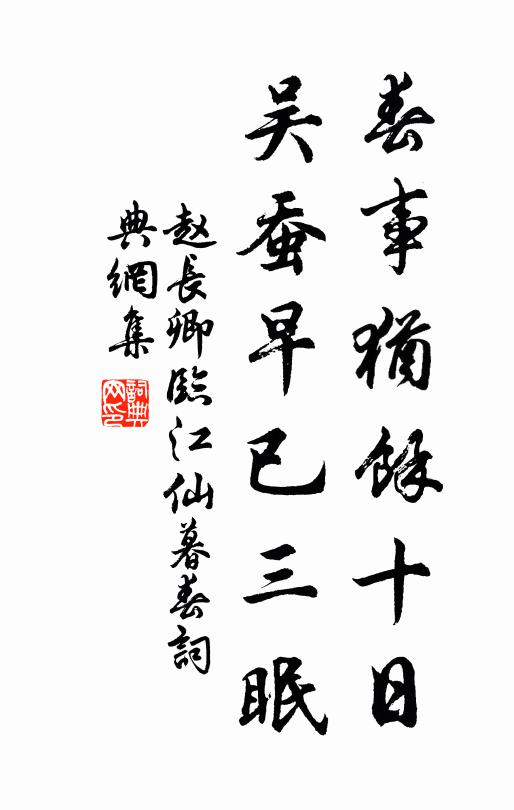 春事猶餘十日
吴蚕早已三眠
赵長卿臨江仙暮春詞
典網集
詞典
网印